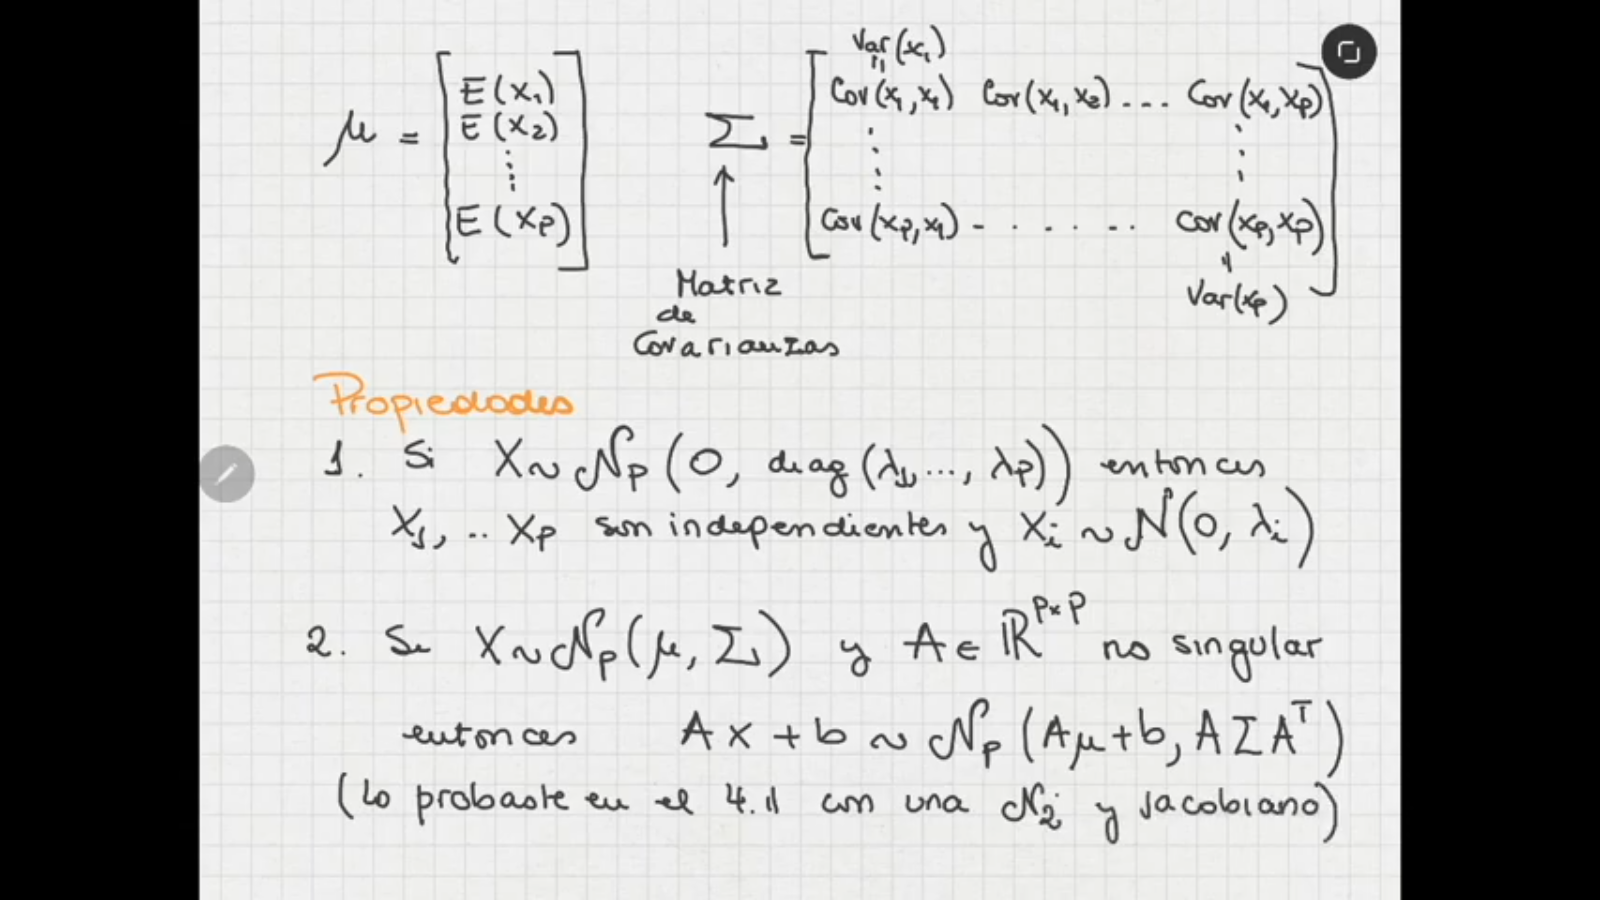 μ = [E(X₁) E(X₂) ⋮ E(Xp)]
Var(x₁)
Σ = [Cov(x₁,x₁) Cov(x₁,x₂) ... Cov(x₁,xp)
Cov(xp,x₁) - . . . . .. Cov(xp,xp)]
Var(xp)
Matriz
de
Covarianzas
Propiedades
1. Si X ~ 𝒩p(0, diag(λ₁,..., λp)) entonces
X₁, .. Xp son independientes y Xi ~ N(0, λi)
2. Si X ~ 𝒩p(μ, Σ) y A ∈ ℝ^{p×p} no singular
entonces AX + b ~ 𝒩p(Aμ+b, AΣAᵀ)
(Lo probaste en el 4.11 con una 𝒩₂ y Jacobiano)